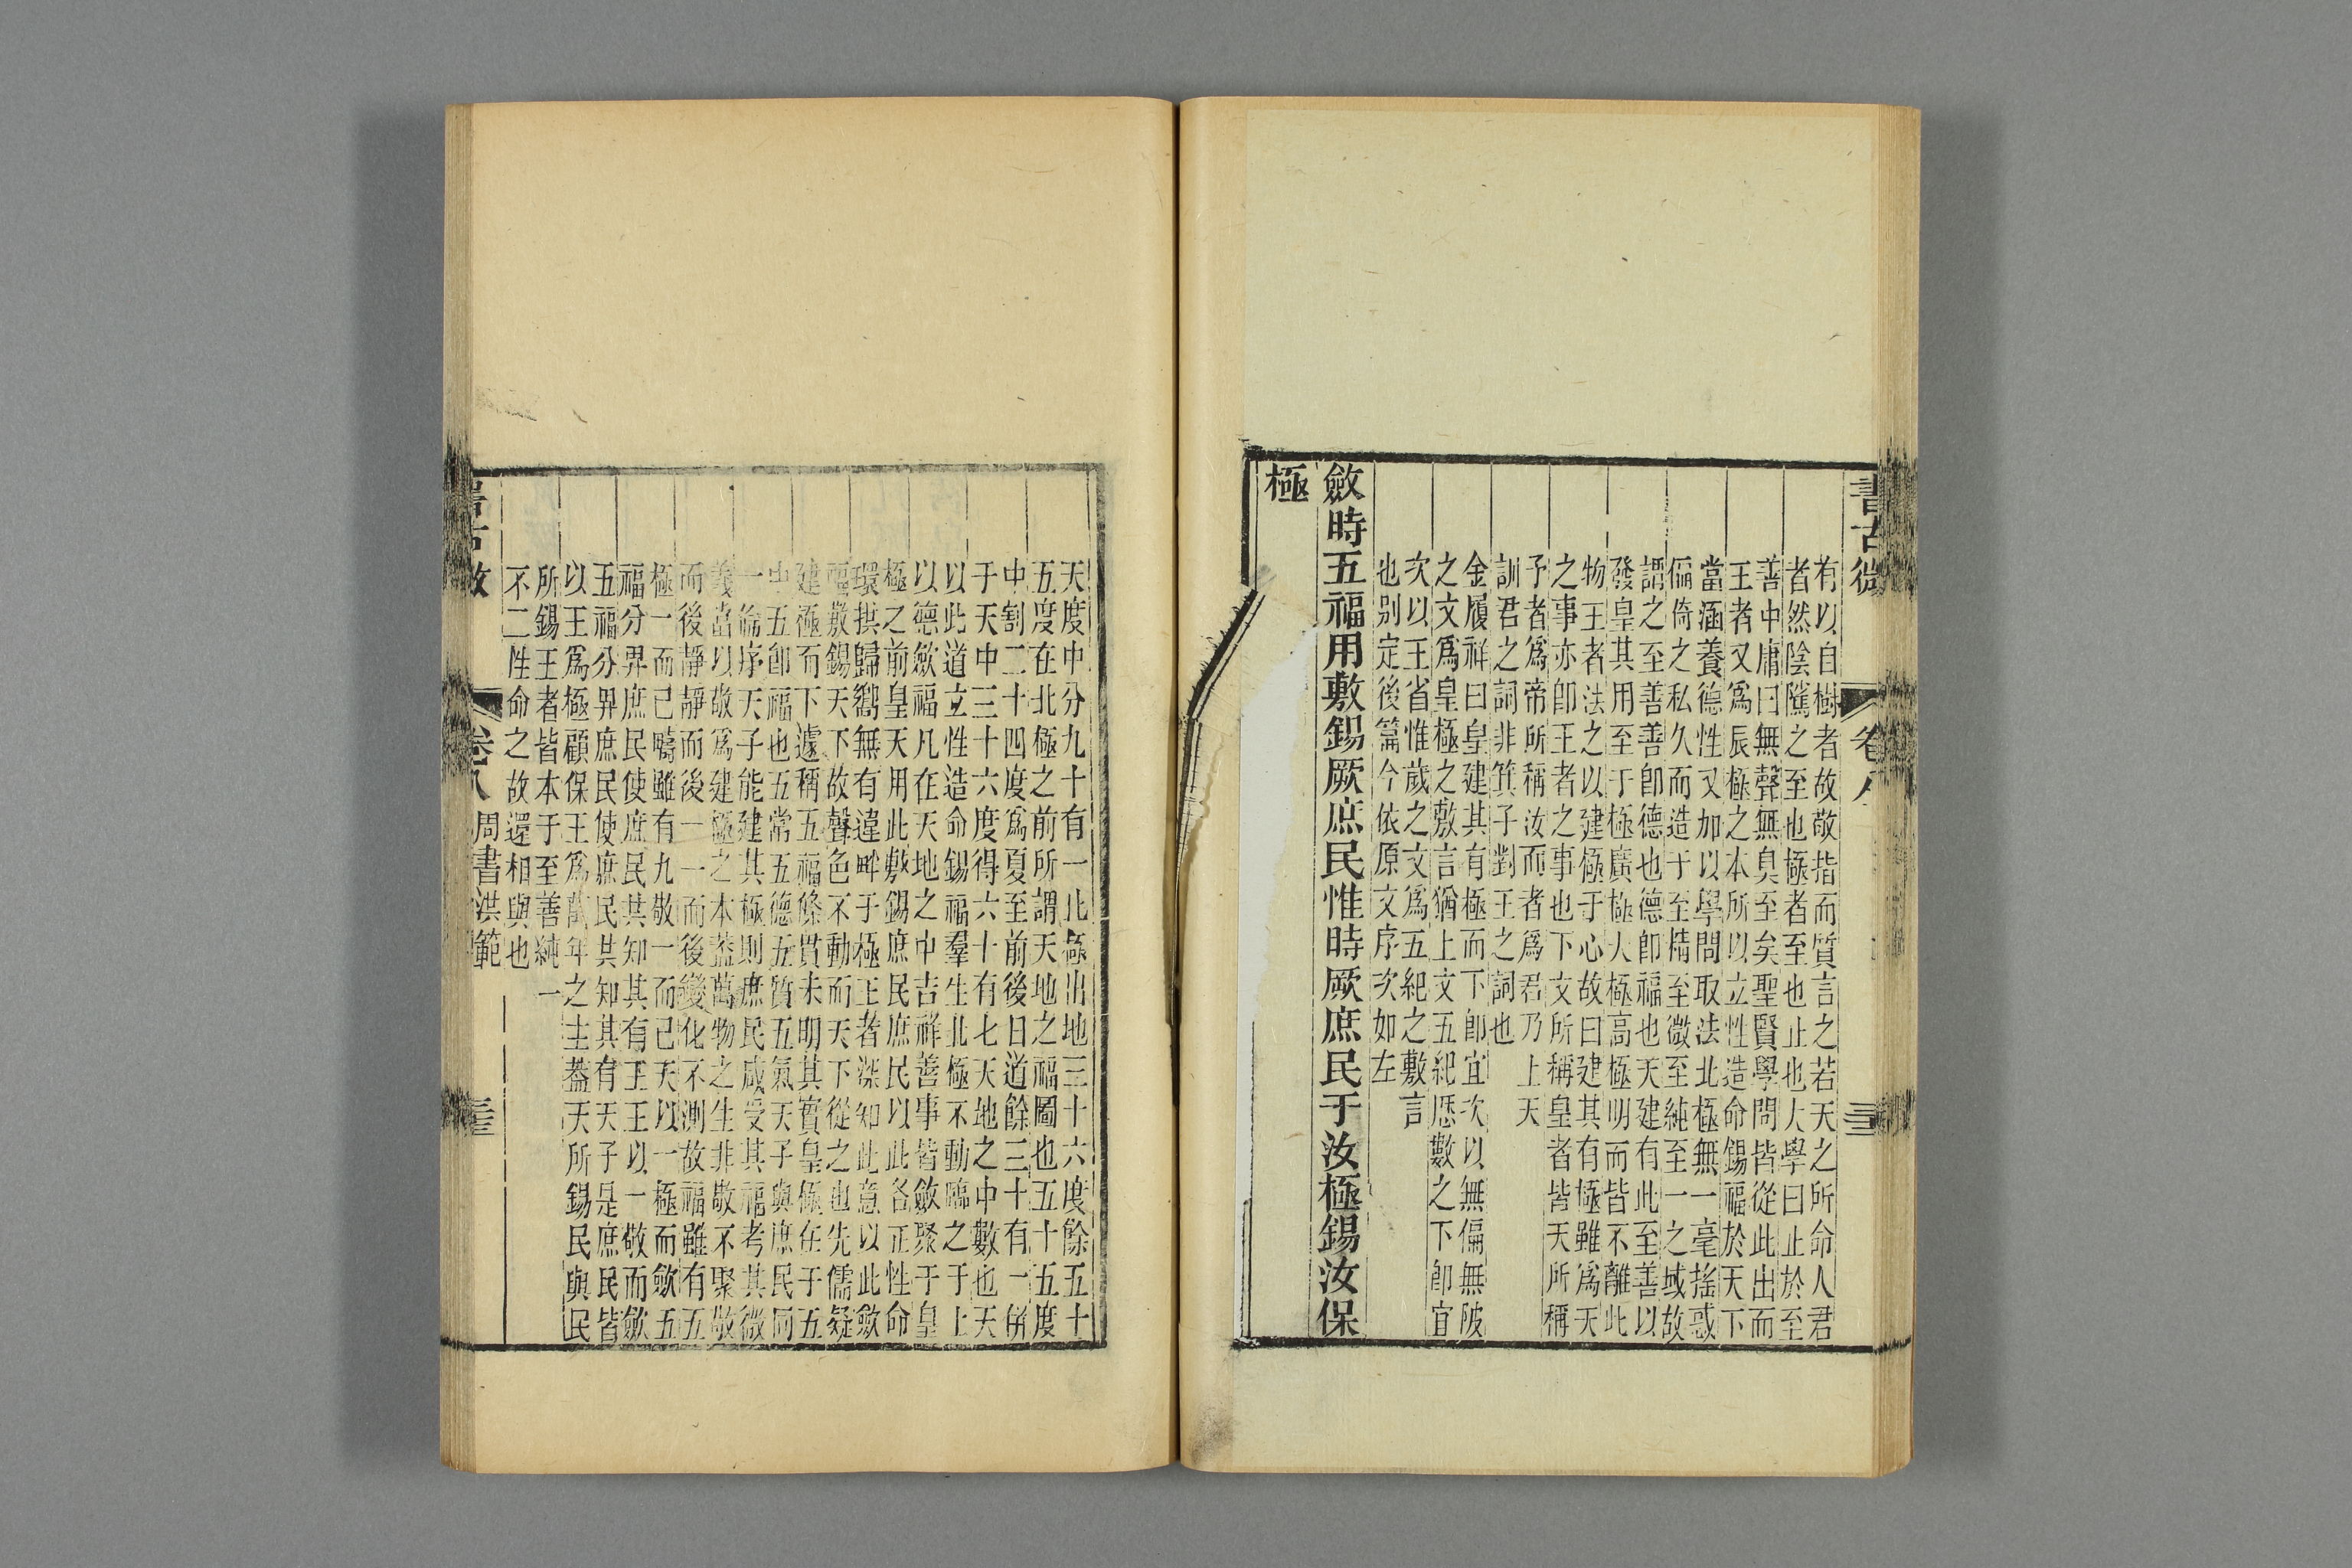 書古微
卷八
有以自樹者故敬指而質言之若天之所命人君
者然陰騭之至也極者至也止也大學曰止於至
善中庸曰無聲無臭至矣聖賢學問皆從此出而
王者又爲辰極之本所以立性造命錫福於天下
當涵養德性又加以學問取法北極無一毫搖惑
偏倚之私久而造于至精至微至純至一之域故
謂之至善善卽德也德卽福也天建有此至善以
發皇其用至于極廣極大極高極明而皆不離此
物王者法之以建極于心故曰建其有極雖爲天
之事亦卽王者之事也下文所稱皇者皆天所稱
予者爲帝所稱汝而者爲君乃上天
訓君之詞非箕子對王之詞也
金履祥曰皇建其有極而下卽宜次以無偏無陂
之文爲皇極之敷言猶上文五紀厯數之下卽宜
次以王省惟歲之文爲五紀之敷言
也别定後篇今依原文序次如左
斂時五福用敷錫厥庶民惟時厥庶民于汝極錫汝保
極
天度中分九十有一北極出地三十六度餘五十
五度在北極之前所謂天地之福圖也五十五度
中割二十四度爲夏至前後日道餘三十有一併
于天中三十六度得六十有七天地之中數也天
以此道立性造命錫福羣生北極不動臨之于上
以德斂福凡在天地之中吉祥善事皆斂聚于皇
極之前皇天用此敷錫庶民庶民以此各正性命
環拱歸嚮無有違畔于極王者深知此意以此斂
福敷錫天下故聲色不動而天下從之也先儒疑
建極而下遽稱五福條貫未明其實皇極在于五
中五卽福也五常五德五質五氣天子與庶民同
一倫序天子能建其極則庶民咸受其福考其微
義當以敬爲建極之本葢萬物之生非敬不聚敬
而後靜靜而後一一而後變化不測故福雖有五
極一而已疇雖有九敬一而已天以一極而歛五
福分畀庶民使庶民其知其有王王以一敬而歛
五福分畀庶民使庶民其知其有天子是庶民皆
以王爲極顧保王爲萬年之主葢天所錫民與民
所錫王者皆本于至善純一
不二性命之故還相與也
書古微
卷八
周書洪範